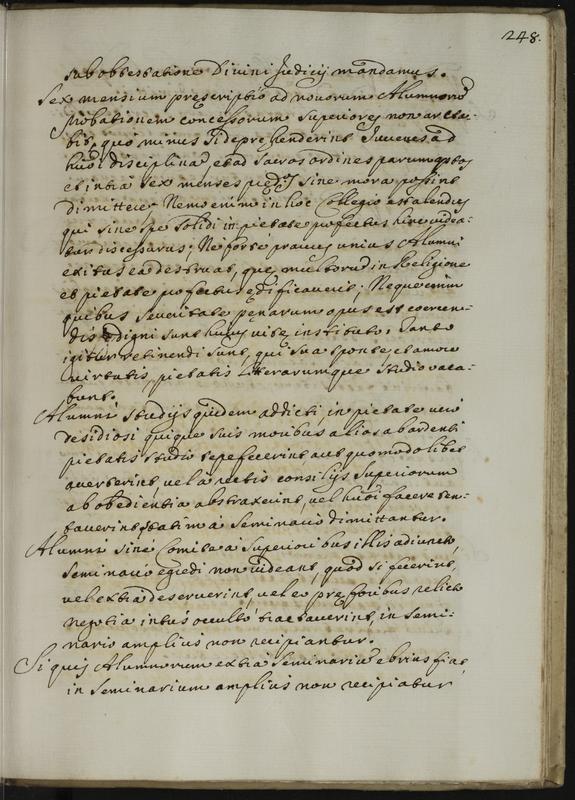 248.
sub obtestatione Divini Judicij mandamus.
Sex mensium prescriptio ad novorum Alumnorũ
probationem concessorum Superiores non arcta-
bit, quo minus si deprehenderint Juvenes ad
huiõi disciplinã, et ad sacros ordines parum aptos
et intra sex menses sine mora possint
dimittere; Nemo enim in hoc Collegio est alendus
qui sine spe solidi in pietate profectus hinc videa-
tur discessurus; Ne forte pravus unius Alumni
exitus ea destruat, quę multorũ in Religione
et pietate profectus ędificaverit; Neque enim
quibus severitate penarum opus est coercen-
dis digni sunt huius vitę instituto: Tanto
igitur retinendi sunt, qui sua sponte, et amore
virtutis, pietatis litterarumque studio vaca-
bunt.
Alumni studijs quidem addicti, in pietate vero
desidiosi quique suis moribus alios ab ardenti
pietatis studio tepefecerint, aut quomodolibet
averterint, vel à rectis consilijs Superiorum
ab obedientia abstraxerint, vel huiõi facere ten-
taverint statim à Seminario dimittantur.
Alumni sine Comite à Superioribus illis adiuncto,
Seminario egredi non audeant, quod si fecerint,
vel extra deseruerint, vel eo prę foribus relicto
negotia intus occultò tractaverint, in Semi-
nario amplius non recipiantur.
Si quis Alumnorum extra Seminariũ ebrius fiat,
in Seminarium amplius non recipiatur